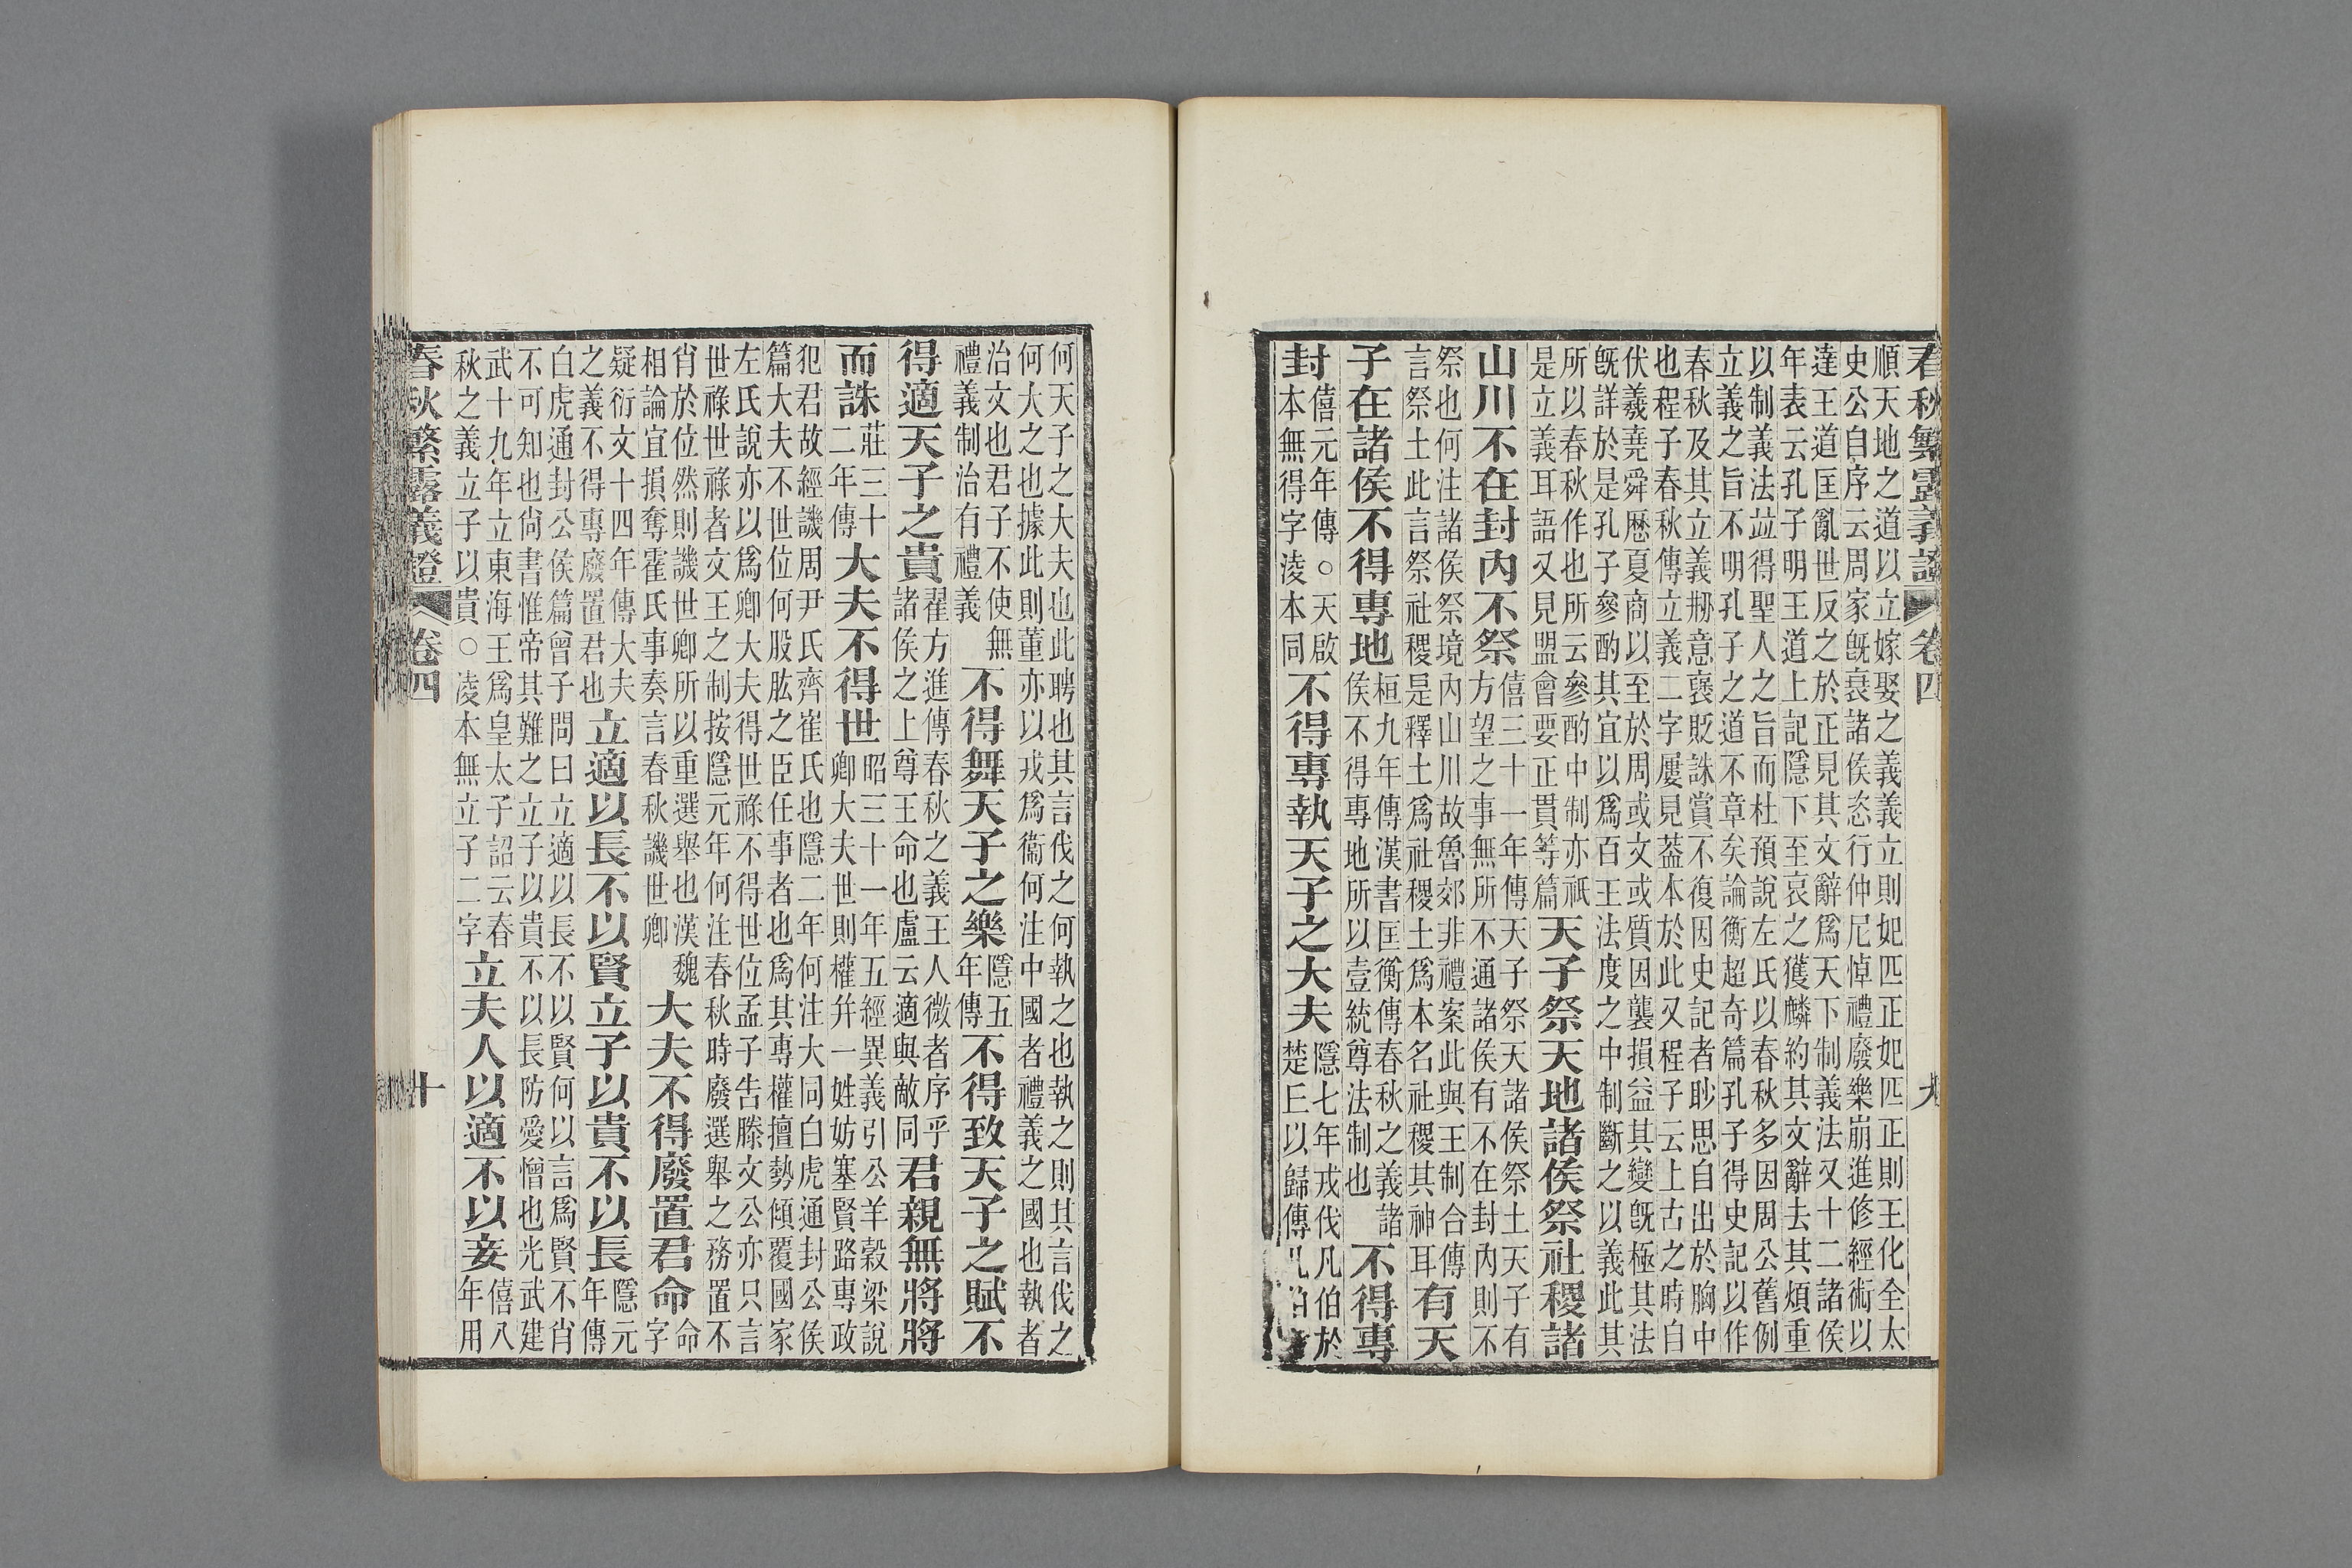 春秋繁露義證 卷四 九
順天地之道以立嫁娶之義義立則妃匹正妃匹正則王化全太
史公自序云周家旣衰諸侯恣行仲尼悼禮廢樂崩進修經術以
達王道匡亂世反之於正見其文辭爲天下制義法又十二諸侯
年表云孔子明王道上記隱下至哀之獲麟約其文辭去其煩重
以制義法竝得聖人之旨而杜預說左氏以春秋多因周公舊例
立義之旨不明孔子之道不章矣論衡超奇篇孔子得史記以作
春秋及其立義剏意襃貶誅賞不復因史記者眇思自出於胸中
也程子春秋傳立義二字屢見葢本於此又程子云上古之時自
伏羲堯舜歷夏商以至於周或文或質因襲損益其變旣極其法
旣詳於是孔子參酌其宜以爲百王法度之中制斷之以義此其
所以春秋作也所云參酌中制亦祇
是立義耳語又見盟會要正貫等篇
天子祭天地諸侯祭社稷諸
山川不在封內不祭
僖三十一年傳天子祭天諸侯祭土天子有
方望之事無所不通諸侯有不在封內則不
祭也何注諸侯祭境內山川故魯郊非禮案此與王制合傳
言祭土此言祭社稷是釋土爲社稷土爲本名社稷其神耳
有天
子在諸侯不得專地
桓九年傳漢書匡衡傳春秋之義諸
侯不得專地所以壹統尊法制也
不得專
封
僖元年傳○天啟
本無得字淩本同
不得專執天子之大夫
隱七年戎伐凡伯於
楚丘以歸傳凡伯
何天子之大夫也此聘也其言伐之何執之也執之則其言伐之
何大之也據此則董亦以戎爲衞何注中國者禮義之國也執者
治文也君子不使無
禮義制治有禮義
不得舞天子之樂
隱五
年傳
不得致天子之賦不
得適天子之貴
翟方進傳春秋之義王人微者序乎
諸侯之上尊王命也盧云適與敵同
君親無將將
而誅
莊三十
二年傳
大夫不得世
昭三十一年五經異義引公羊穀梁說
卿大夫世則權幷一姓妨塞賢路專政
犯君故經譏周尹氏齊崔氏也隱二年何注大同白虎通封公侯
篇大夫不世位何股肱之臣任事者也爲其專權擅勢傾覆國家
左氏說亦以爲卿大夫得世祿不得世位孟子告滕文公亦只言
世祿世祿者文王之制按隱元年何注春秋時廢選舉之務置不
肖於位然則譏世卿所以重選舉也漢魏
相論宜損奪霍氏事奏言春秋譏世卿
大夫不得廢置君命
命
字
疑衍文十四年傳大夫
之義不得專廢置君也
立適以長不以賢立子以貴不以長
隱元
年傳
白虎通封公侯篇曾子問曰立適以長不以賢何以言爲賢不肖
不可知也尙書惟帝其難之立子以貴不以長防愛憎也光武建
武十九年立東海王爲皇太子詔云春
秋之義立子以貴○淩本無立子二字
立夫人以適不以妾
僖八
年用
春秋繁露義證 卷四 十